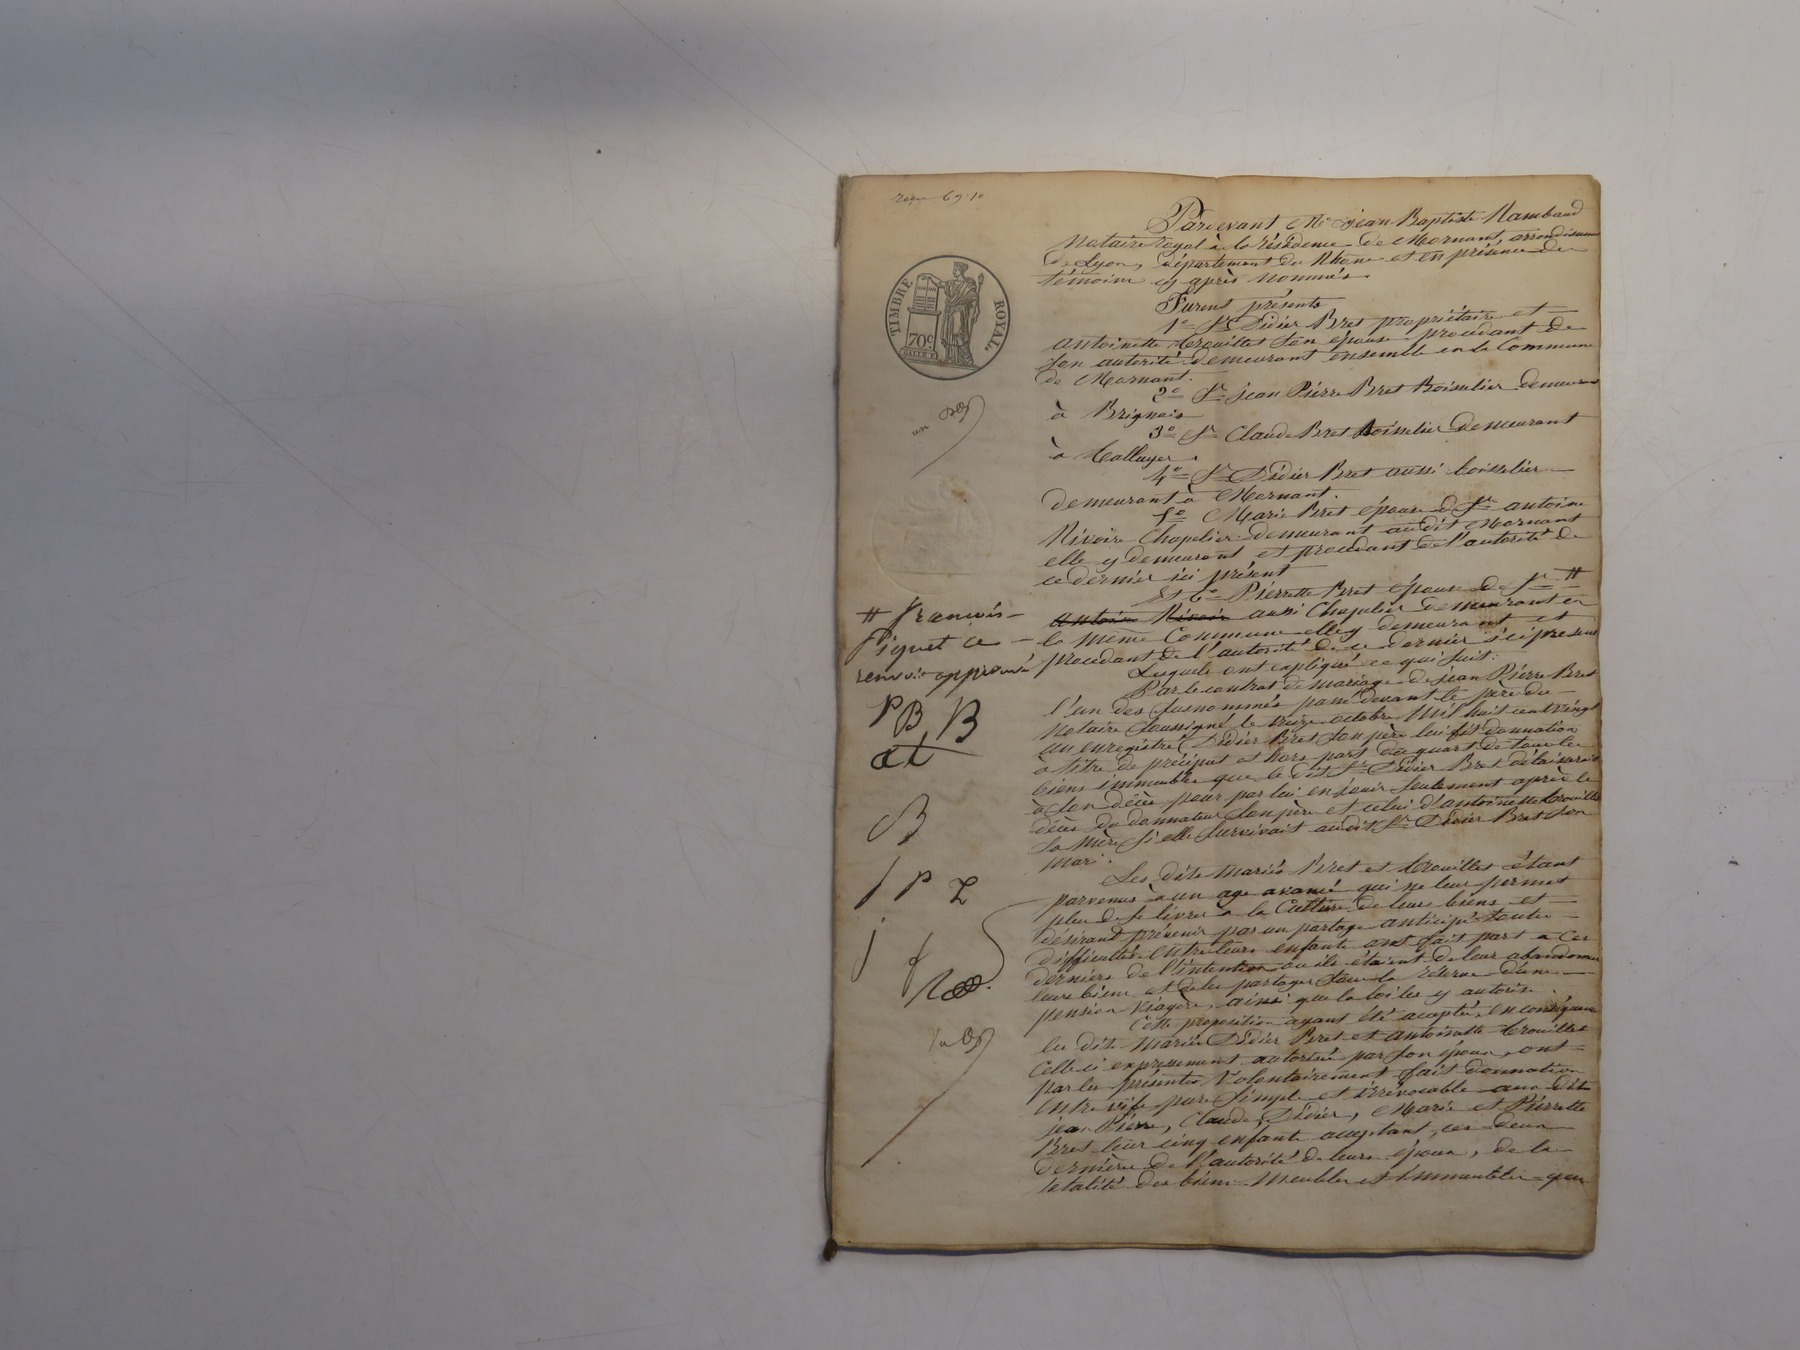 reçu 69.10
Pardevant Me Jean Baptiste Rambaud
Notaire royal à la résidence de Mornant, arrondissem
de Lyon, département du Rhône et en présence des
témoins cy après nommés
Furent présents
1º Sr Didier Bret propriétaire et
antoinette Crouillet son épouse procédant de
son autorité demeurant ensemble en la Commune
de Mornant.
2º Sr jean Pierre Bret Boisselier demeurant
à Brignais
3º Sr Claude Bret Boisselier demeurant
à
4º Sr Didier Bret aussi boisselier
demeurant à Mornant.
5º Marie Bret épouse de Sr antoine
Rivoire Chapelier demeurant audit Mornant
elle y demeurant et procédant de l'autorité de
ce dernier ici présent
Et 6º Pierrette Bret épouse de Sr #
antoine Rivoir aussi Chapelier demeurant en
la même Commune elle y demeurant et
procedant de l'autorité de ce dernier ici present
Lesquels ont expliqué ce qui suit:
Par le contrat de mariage de jean Pierre Bret
l'un des susnommés passé devant le père du
Notaire soussigné le treize octobre mil huit cent vingt
un enregistré, Didier Bret son père lui fit donnation
à titre de préciput et hors part du quart de tous les
biens immeubles que le dit Sr Didier Bret délaisserait
à son décès pour par lui en jouir seulement après le
décès du donnateur son père et celui d'antoinette Crouillet
sa mère si elle survivait audit Sr Didier Bret son
mari.
Les dits mariés Bret et Crouillet étant
parvenus à un age avancé qui ne leur permet
plus de se livrer à la Culture de leurs biens et
désirant prévenir par un partage anticipé toutes
difficultés entre leurs enfants ont fait part a ces
derniers de l'intention ou ils étaient de leur abandonner
leurs biens et de les partager sous la réserve d'une
pension viagère, ainsi que la loi les y autorise.
Cette proposition ayant été acceptée, en conséquence
les dits mariés Didier Bret et antoinette Crouillet
Celle ci expressement autorisée par son époux, ont
par les présentes volontairement fait donnation
entre vifs pure simple et irrévocable aux dits
jean Pierre, Claude, Didier, Marie et Pierrette
Bret leurs cinq enfants acceptant, ces deux
dernières de l'autorité de leurs époux, de la
totalité des biens meubles et immeubles que
TIMBRE ROYAL.
70c
# françois
Piquet ce
renvoi approuvé
PB B
at
B
P
j f